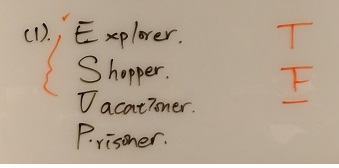 (1). Explorer. T
Shopper. F
Vacationer.
Prisoner.